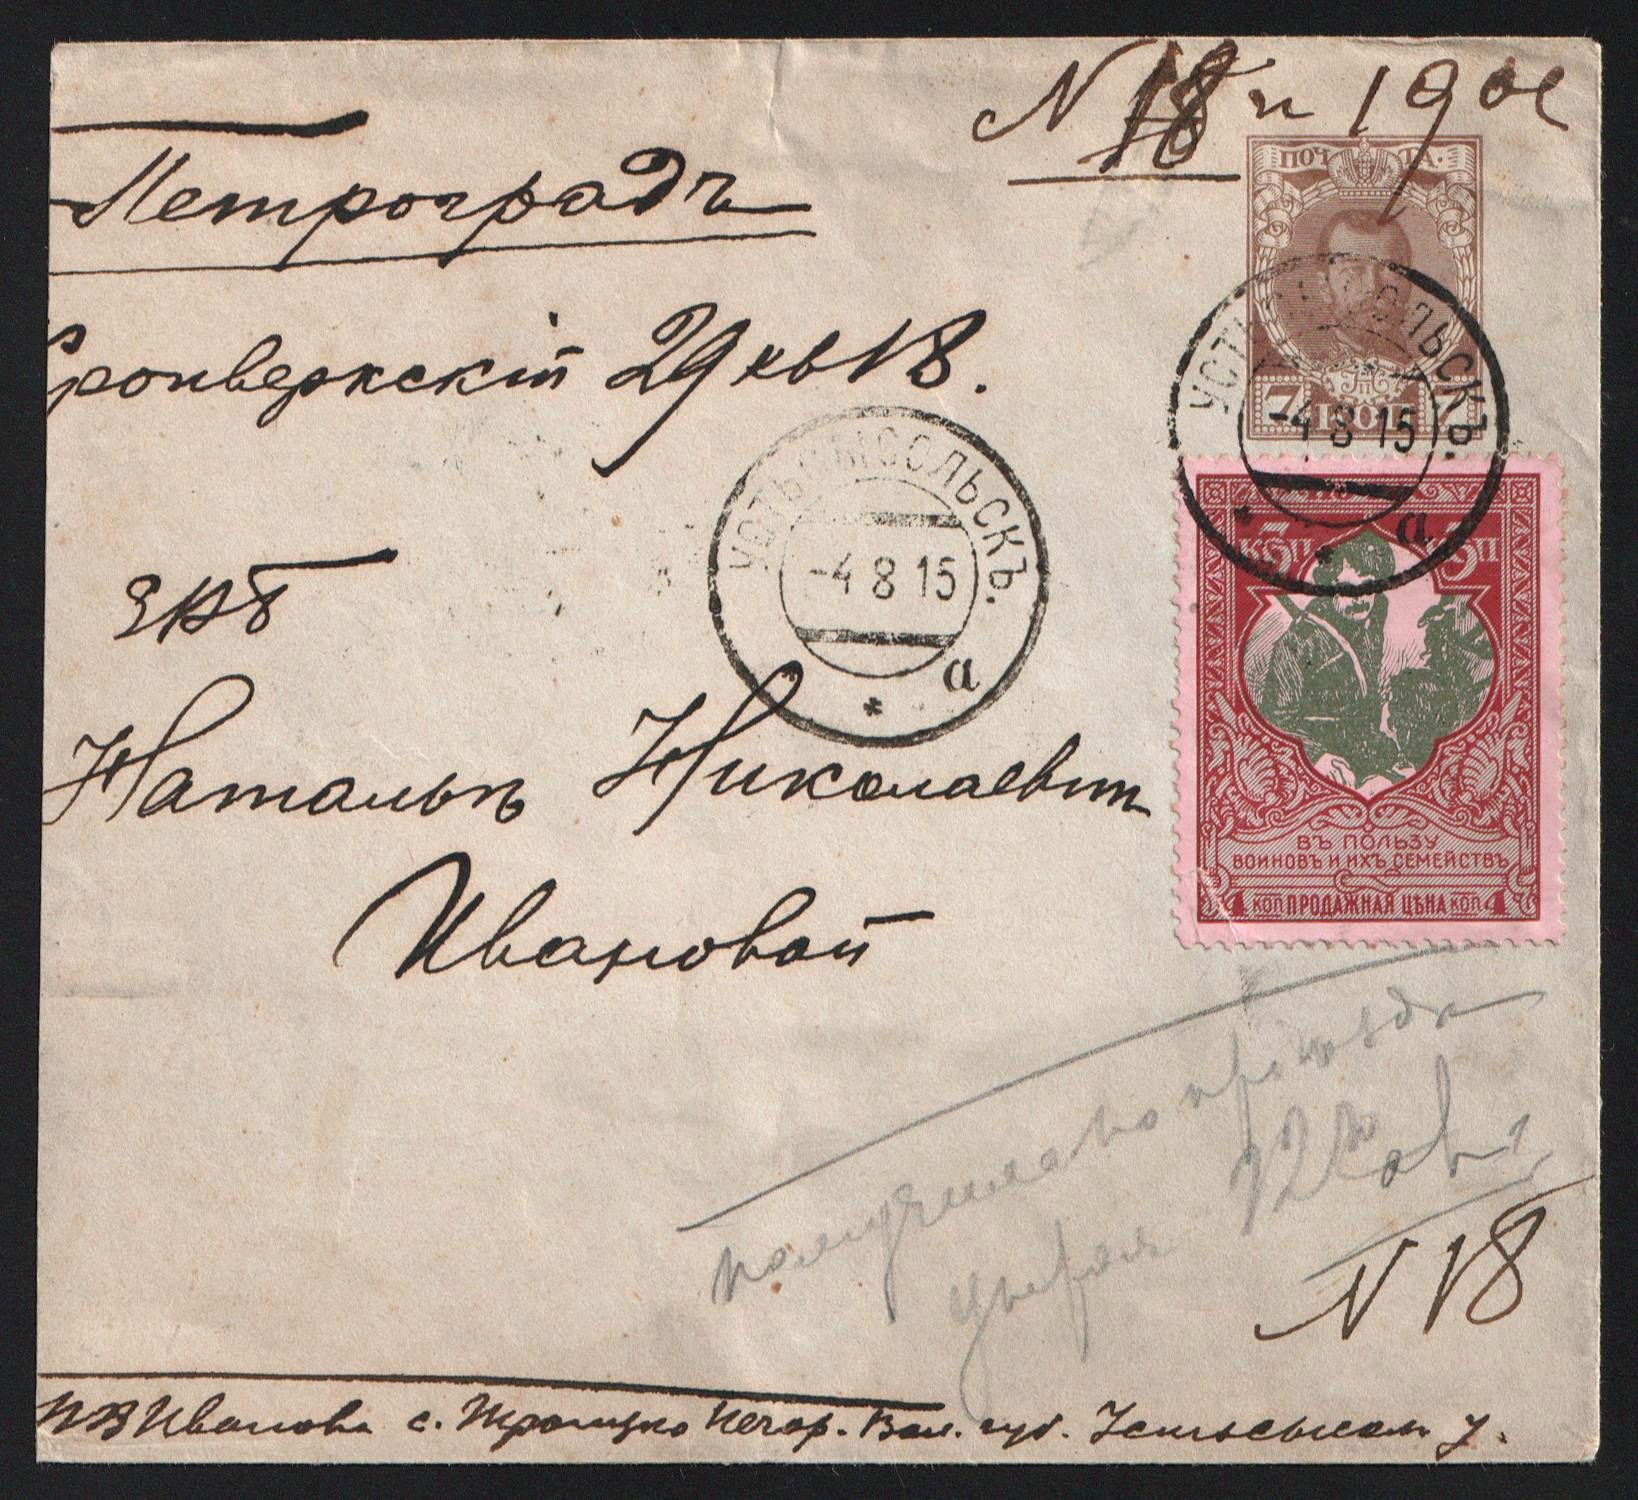 N 18 и 19 ое
Петроградъ
Кронверкскій 29 кв 18.
ПОЧТА.
7 КОП 7
УСТЬСЫСОЛЬСКЪ.
-4 8 15
* * а
УСТЬСЫСОЛЬСКЪ.
-4 8 15
* а
ЕВБ
Натальѣ Николаевнѣ
Ивановой
3 КОП 3 КОП
ВЪ ПОЛЬЗУ
ВОИНОВЪ И ИХЪ СЕМЕЙСТВЪ
4 КОП ПРОДАЖНАЯ ЦѢНА КОП 4
получила во
N 18
Иванова с. Троицко Печор. Вол. губ. Устьсысол у.